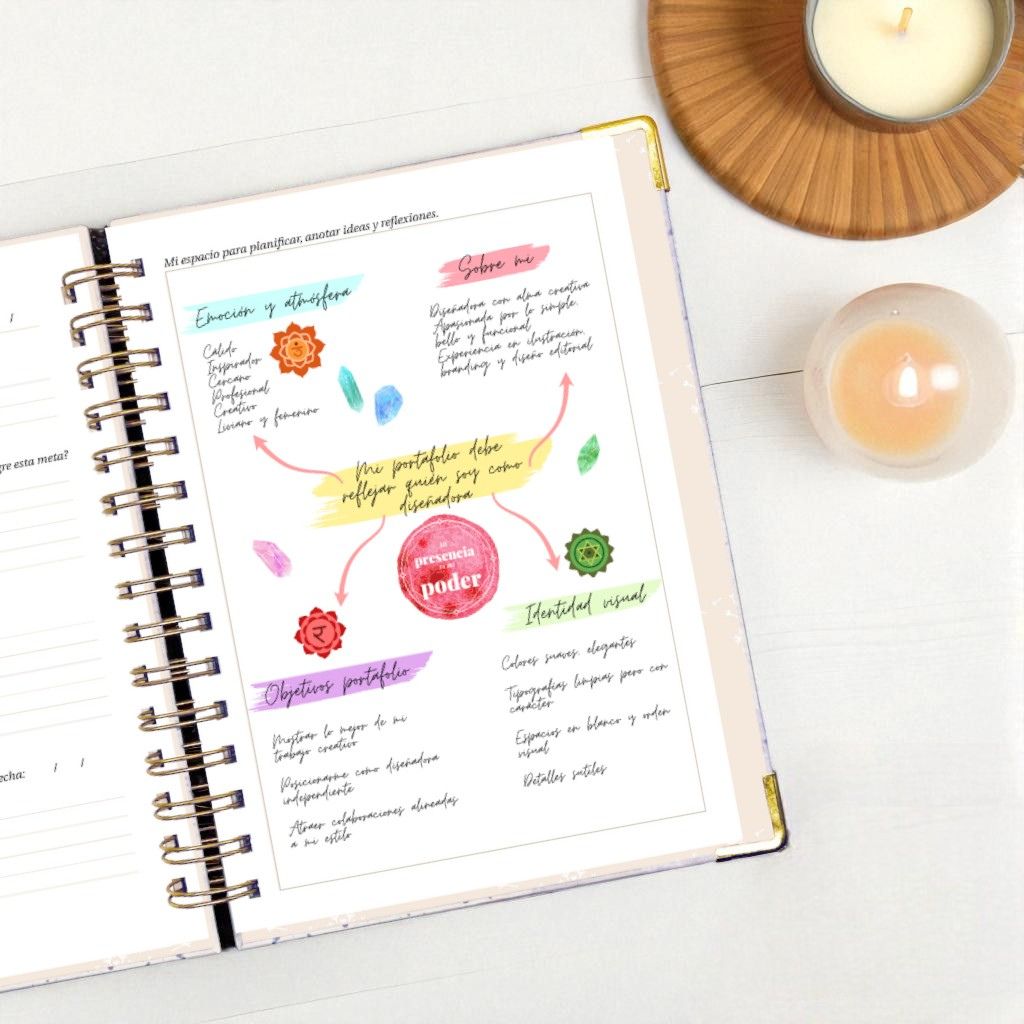 Mi espacio para planificar, anotar ideas y reflexiones.
Emoción y atmósfera
Cálido
Inspirador
Cercano
Profesional
Creativo
Liviano y femenino
Sobre mi
Diseñadora con alma creativa
Apasionada por lo simple,
bello y funcional
Experiencia en ilustración,
branding y diseño editorial
Mi portafolio debe
reflejar quién soy como
diseñadora
mi
presencia
es mi
poder
Objetivos portafolio
Mostrar lo mejor de mi
trabajo creativo
Posicionarme como diseñadora
independiente
Atraer colaboraciones alineadas
a mi estilo
Identidad visual
Colores suaves, elegantes
Tipografías limpias pero con
carácter
Espacios en blanco y orden
visual
Detalles sutiles
/
esta meta?
/ /